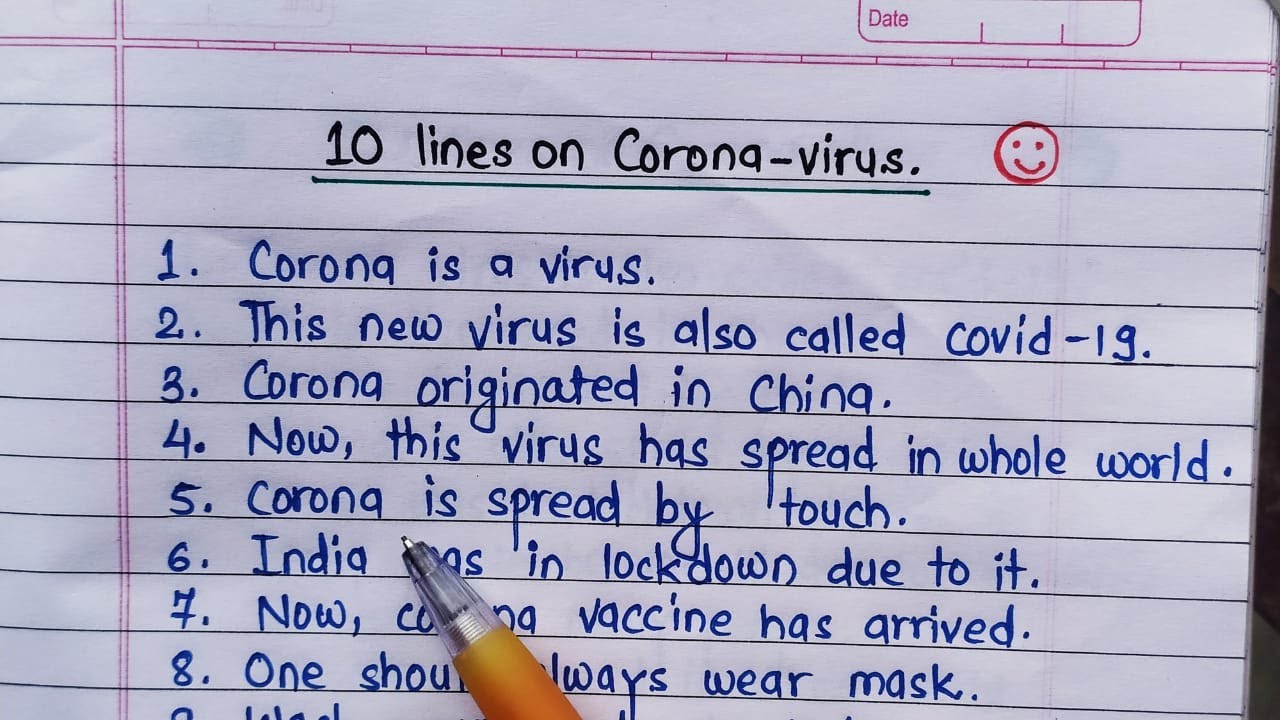 Date
10 lines on Corona-virus.
1. Corona is a virus.
2. This new virus is also called covid-19.
3. Corona originated in China.
4. Now, this virus has spread in whole world.
5. Corona is spread by touch.
6. India in lockdown due to it.
7. Now, vaccine has arrived.
8. One wear mask.